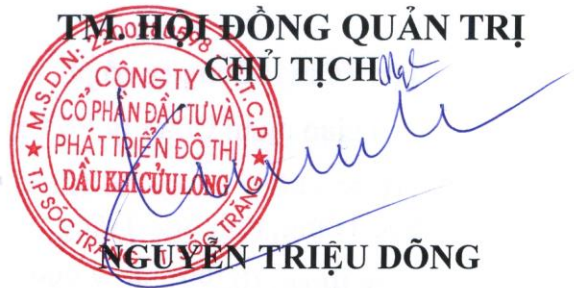 TM. HỘI ĐỒNG QUẢN TRỊ
CHỦ TỊCH
CÔNG TY
CỔ PHẦN ĐẦU TƯ VÀ
PHÁT TRIỂN ĐÔ THỊ
DẦU KHÍ CỬU LONG
M.S.D.N: C.T.C.P
T.P SÓC TRĂNG T. SÓC TRĂNG
NGUYỄN TRIỆU DÕNG